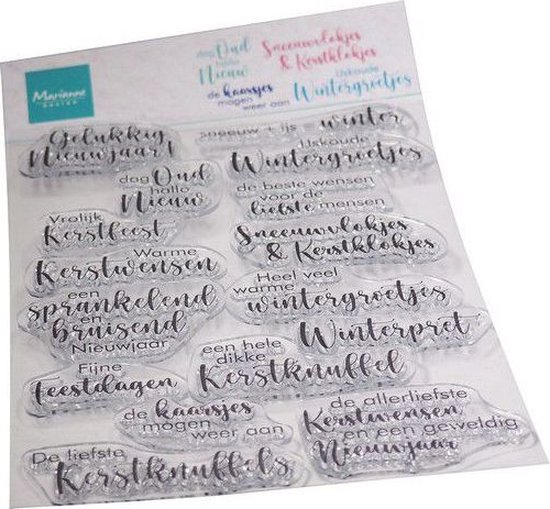 Marianne
DESIGN
dag Oud
hallo
Nieuw
Sneeuwvlokjes
& Kerstklokjes
de kaarsjes
mogen
weer aan
IJskoude
Wintergroetjes
Gelukkig
Nieuwjaar!
sneeuw + ijs = winter
IJskoude
Wintergroetjes
dag Oud
hallo
Nieuw
de beste wensen
voor de
liefste mensen
Vrolijk
Kerstfeest
Sneeuwvlokjes
& Kerstklokjes
Warme
Kerstwensen
Heel veel
warme
wintergroetjes
een
sprankelend
en
bruisend
Nieuwjaar
Winterpret
een hele
dikke
Kerstknuffel
Fijne
feestdagen
de kaarsjes
mogen
weer aan
de allerliefste
Kerstwensen
en een geweldig
Nieuwjaar
De liefste
Kerstknuffels